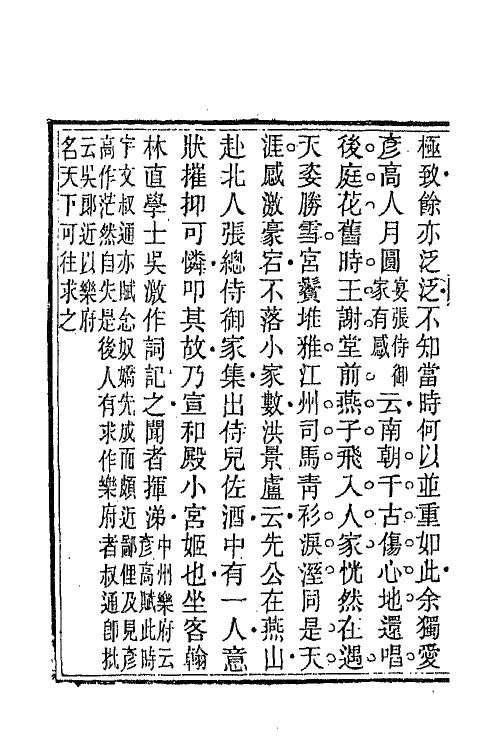 極致餘亦泛泛不知當時何以並重如此余獨愛
彥高人月圓宴張侍御家有感云南朝千古傷心地還唱
後庭花舊時王謝堂前燕子飛入人家恍然在遇
天姿勝雪宮鬢堆雅江州司馬靑衫淚溼同是天
涯感激豪宕不落小家數洪景盧云先公在燕山
赴北人張總侍御家集出侍兒佐酒中有一人意
狀摧抑可憐叩其故乃宣和殿小宮姬也坐客翰
林直學士吳激作詞記之聞者揮涕中州樂府云彥高賦此時
宇文叔通亦賦念奴嬌先成而頗近鄙俚及見彥
高作茫然自失是後人有求作樂府者叔通卽批
云吳郞近以樂府
名天下可往求之